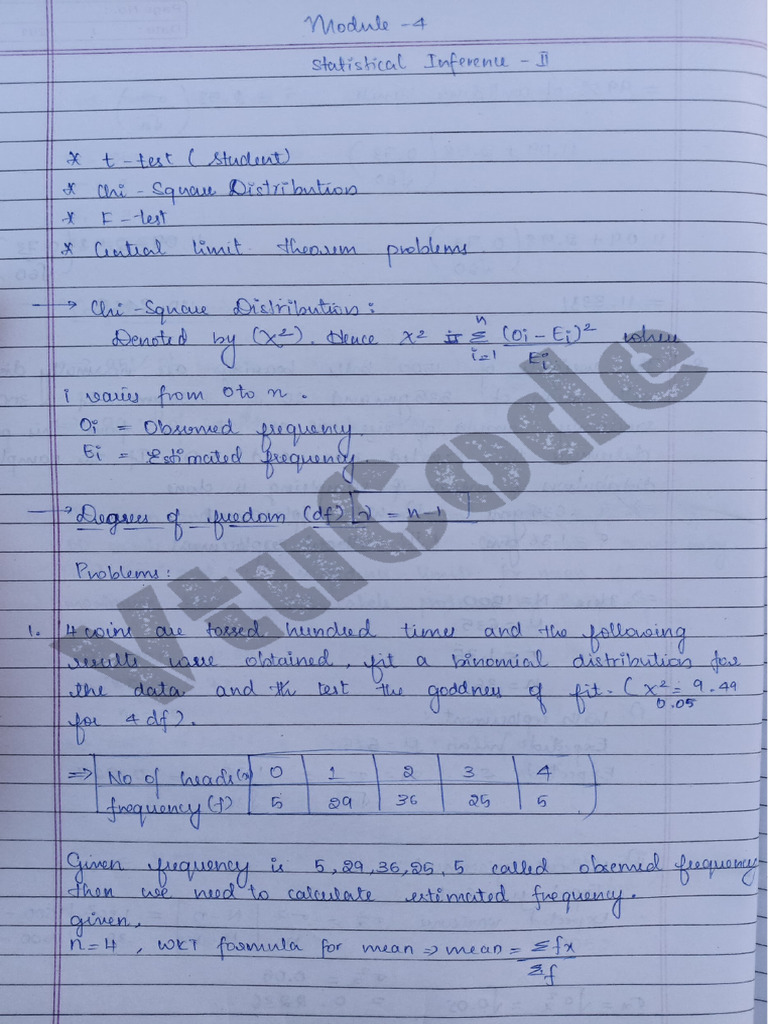 Module - 4
Statistical Inference - II
* t-test (student)
* Chi-Square Distribution
* F-test
* Central limit theorem problems
→ Chi-Square Distribution:
Denoted by (X²). Hence X² = Σ (Oi - Ei)² where
n
i=1
Ei
i varies from 0 to n.
Oi = Observed frequency
Ei = Estimated frequency
→ Degrees of freedom (df) [ν = n-1]
Problems:
1. 4 coins are tossed hundred times and the following
results were obtained, fit a binomial distribution for
the data and th test the goddness of fit. (X²0.05 = 9.49
for 4 df).
⇒ No of heads(x) 0 1 2 3 4
frequency(f) 5 29 36 25 5
Given frequency is 5, 29, 36, 25, 5 called observed frequency
then we need to calculate estimated frequency.
given,
n=4, WKT formula for mean ⇒ mean = Σfx
Σf
VtuCode